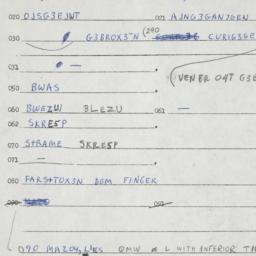 020 DJSG3EJWT 021 AJNG3GANJGEN
030 G3BROX3~N (290 CUBIG3GE
031 —
VENER 04T G3E
050 BWAS
060 BWEZW BLEZU 061 —
062 SKRESP
070 STRAME SKRESP
071 —
080 FARSTOX3N DOM FINGER
090
090 MAZOY, L'ES QMW a L WITH INFERIOR TH